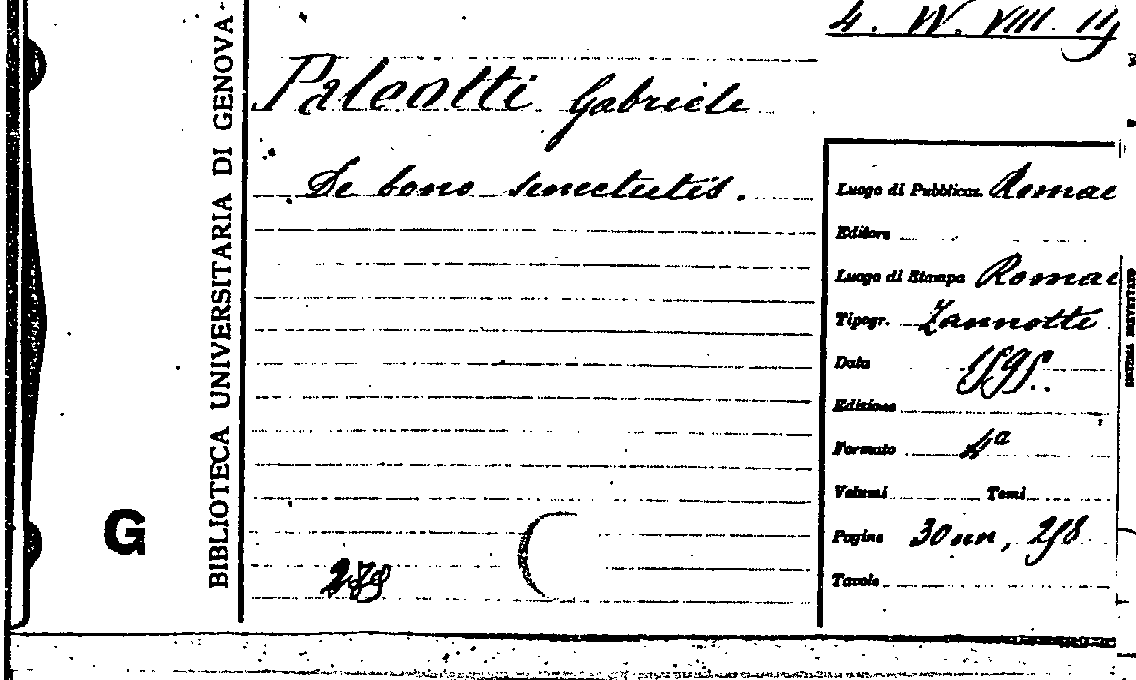 4. W. VIII. 119
Paleotti Gabriele
De bono senectutis.
BIBLIOTECA UNIVERSITARIA DI GENOVA
G
Luogo di Pubblicaz. Romae
Editore
Luogo di Stampa Romae
Tipogr. Zannotti
Data 1595.
Edizione
Formato 4ª
Volumi Tomi
Pagine 30 nn, 298
Tavole